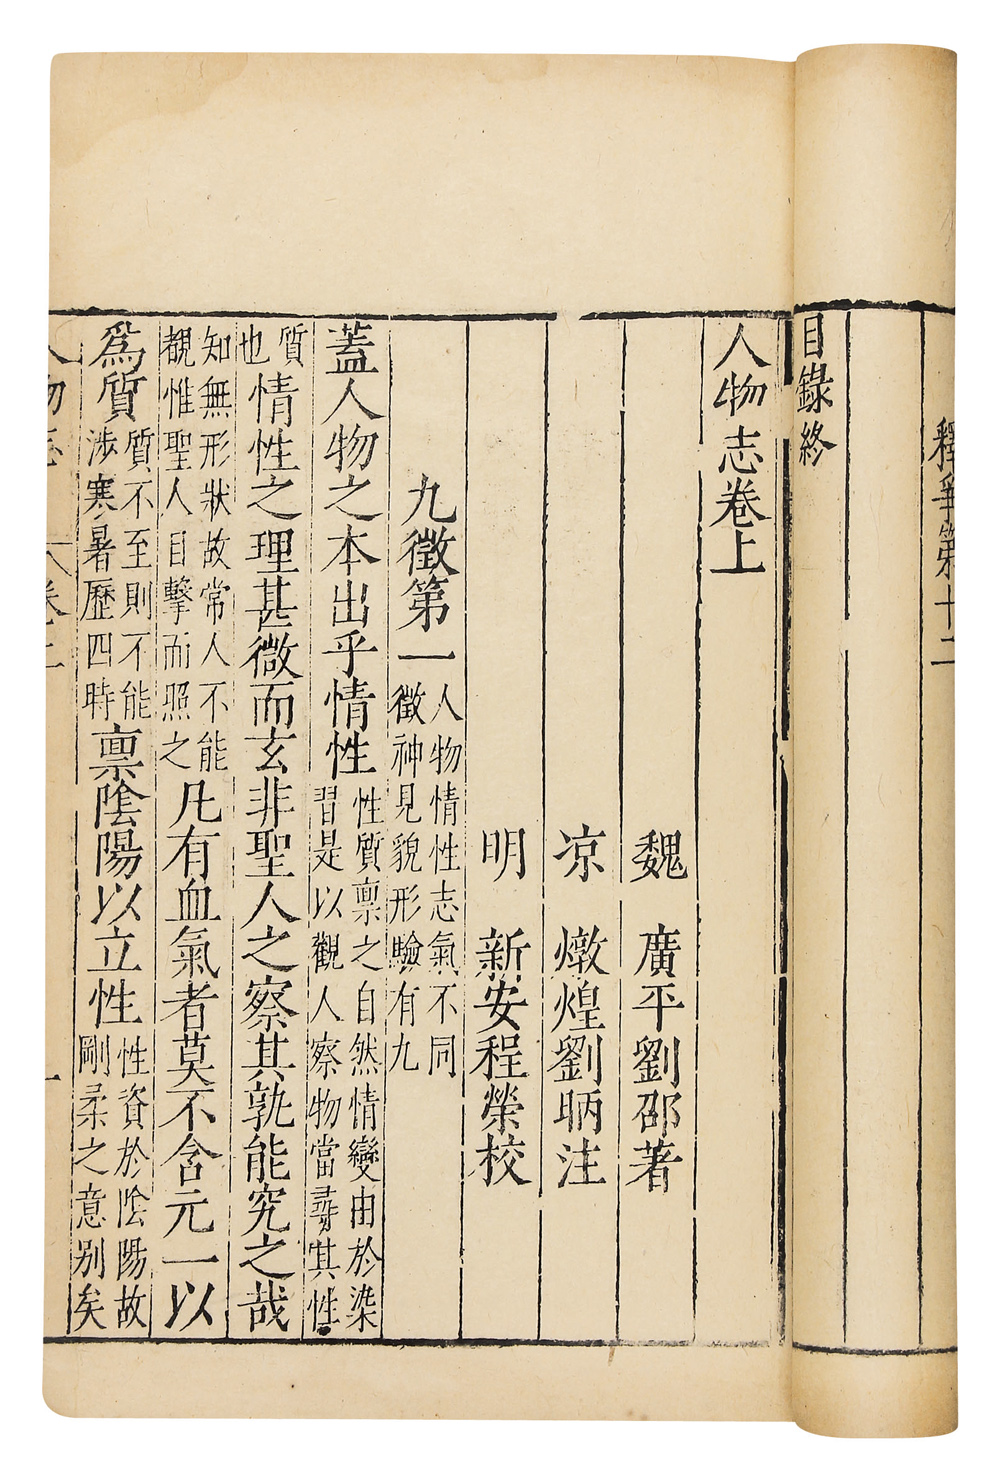 釋爭第十二
目錄終
人物志卷上
魏 廣平劉邵著
凉 燉煌劉昞注
明 新安程榮校
九徵第一 人物情性志氣不同徵神見貌形驗有九
蓋人物之本出乎情性 性質禀之自然情變由於染習是以觀人察物當尋其性
質也 情性之理甚微而玄非聖人之察其孰能究之哉
知無形狀故常人不能覩惟聖人目擊而照之 凡有血氣者莫不含元一以
爲質 質不至則不能涉寒暑歷四時 禀陰陽以立性 性資於陰陽故剛柔之意别矣
人物志 卷上 一